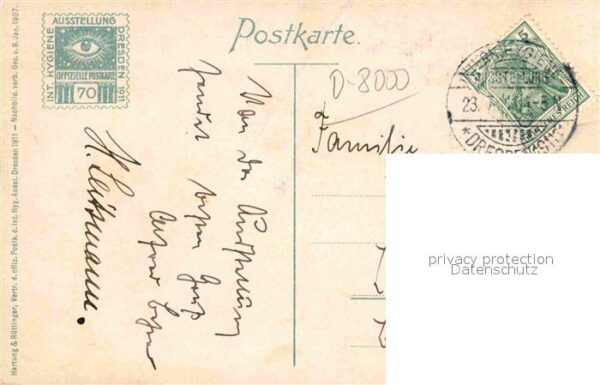 INT. HYGIENE
AUSSTELLUNG
DRESDEN 1911
OFFIZIELLE POSTKARTE
70
Postkarte.
D-8000
5
23.
DRESDEN
Familie
Von der Ausstellung
sendet
besten Gruß
H. Leitzmann.
privacy protection
Datenschutz
Hartung & Rüttinger, Vertr. d. offiz. Postk. d. Int. Hyg. Ausst. Dresden 1911 — Nachbild. verb. Ges. v. 9. Jan. 1907.